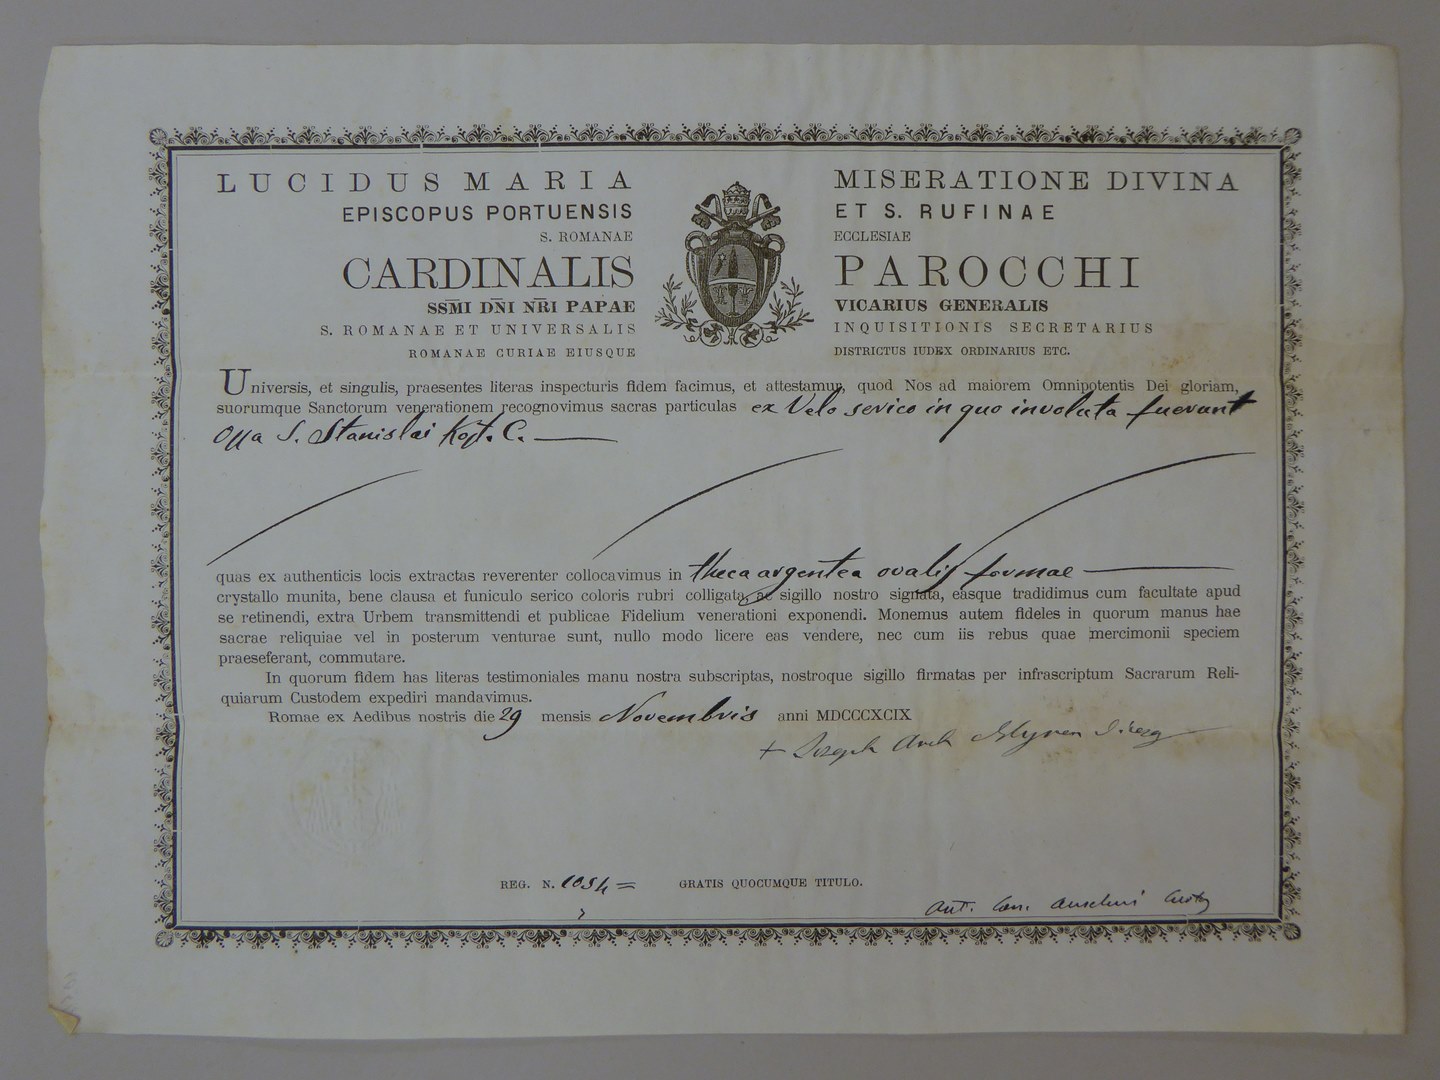 LUCIDUS MARIA MISERATIONE DIVINA
EPISCOPUS PORTUENSIS ET S. RUFINAE
S. ROMANAE ECCLESIAE
CARDINALIS PAROCCHI
SSM̄I DN̄I NR̄I PAPAE VICARIUS GENERALIS
S. ROMANAE ET UNIVERSALIS INQUISITIONIS SECRETARIUS
ROMANAE CURIAE EIUSQUE DISTRICTUS IUDEX ORDINARIUS ETC.
Universis, et singulis, praesentes literas inspecturis fidem facimus, et attestamur, quod Nos ad maiorem Omnipotentis Dei gloriam,
suorumque Sanctorum venerationem recognovimus sacras particulas ex Velo serico in quo involuta fuerunt
Ossa S. Stanislai Kost. C.
quas ex authenticis locis extractas reverenter collocavimus in theca argentea ovalis formae
crystallo munita, bene clausa et funiculo serico coloris rubri colligata, ac sigillo nostro signata, easque tradidimus cum facultate apud
se retinendi, extra Urbem transmittendi et publicae Fidelium venerationi exponendi. Monemus autem fideles in quorum manus hae
sacrae reliquiae vel in posterum venturae sunt, nullo modo licere eas vendere, nec cum iis rebus quae mercimonii speciem
praeseferant, commutare.
In quorum fidem has literas testimoniales manu nostra subscriptas, nostroque sigillo firmatas per infrascriptum Sacrarum Reli-
quiarum Custodem expediri mandavimus.
Romae ex Aedibus nostris die 29 mensis Novembris anni MDCCCXCIX
+ Joseph
REG. N. GRATIS QUOCUMQUE TITULO.
Ant. Can. Anselmi Custos